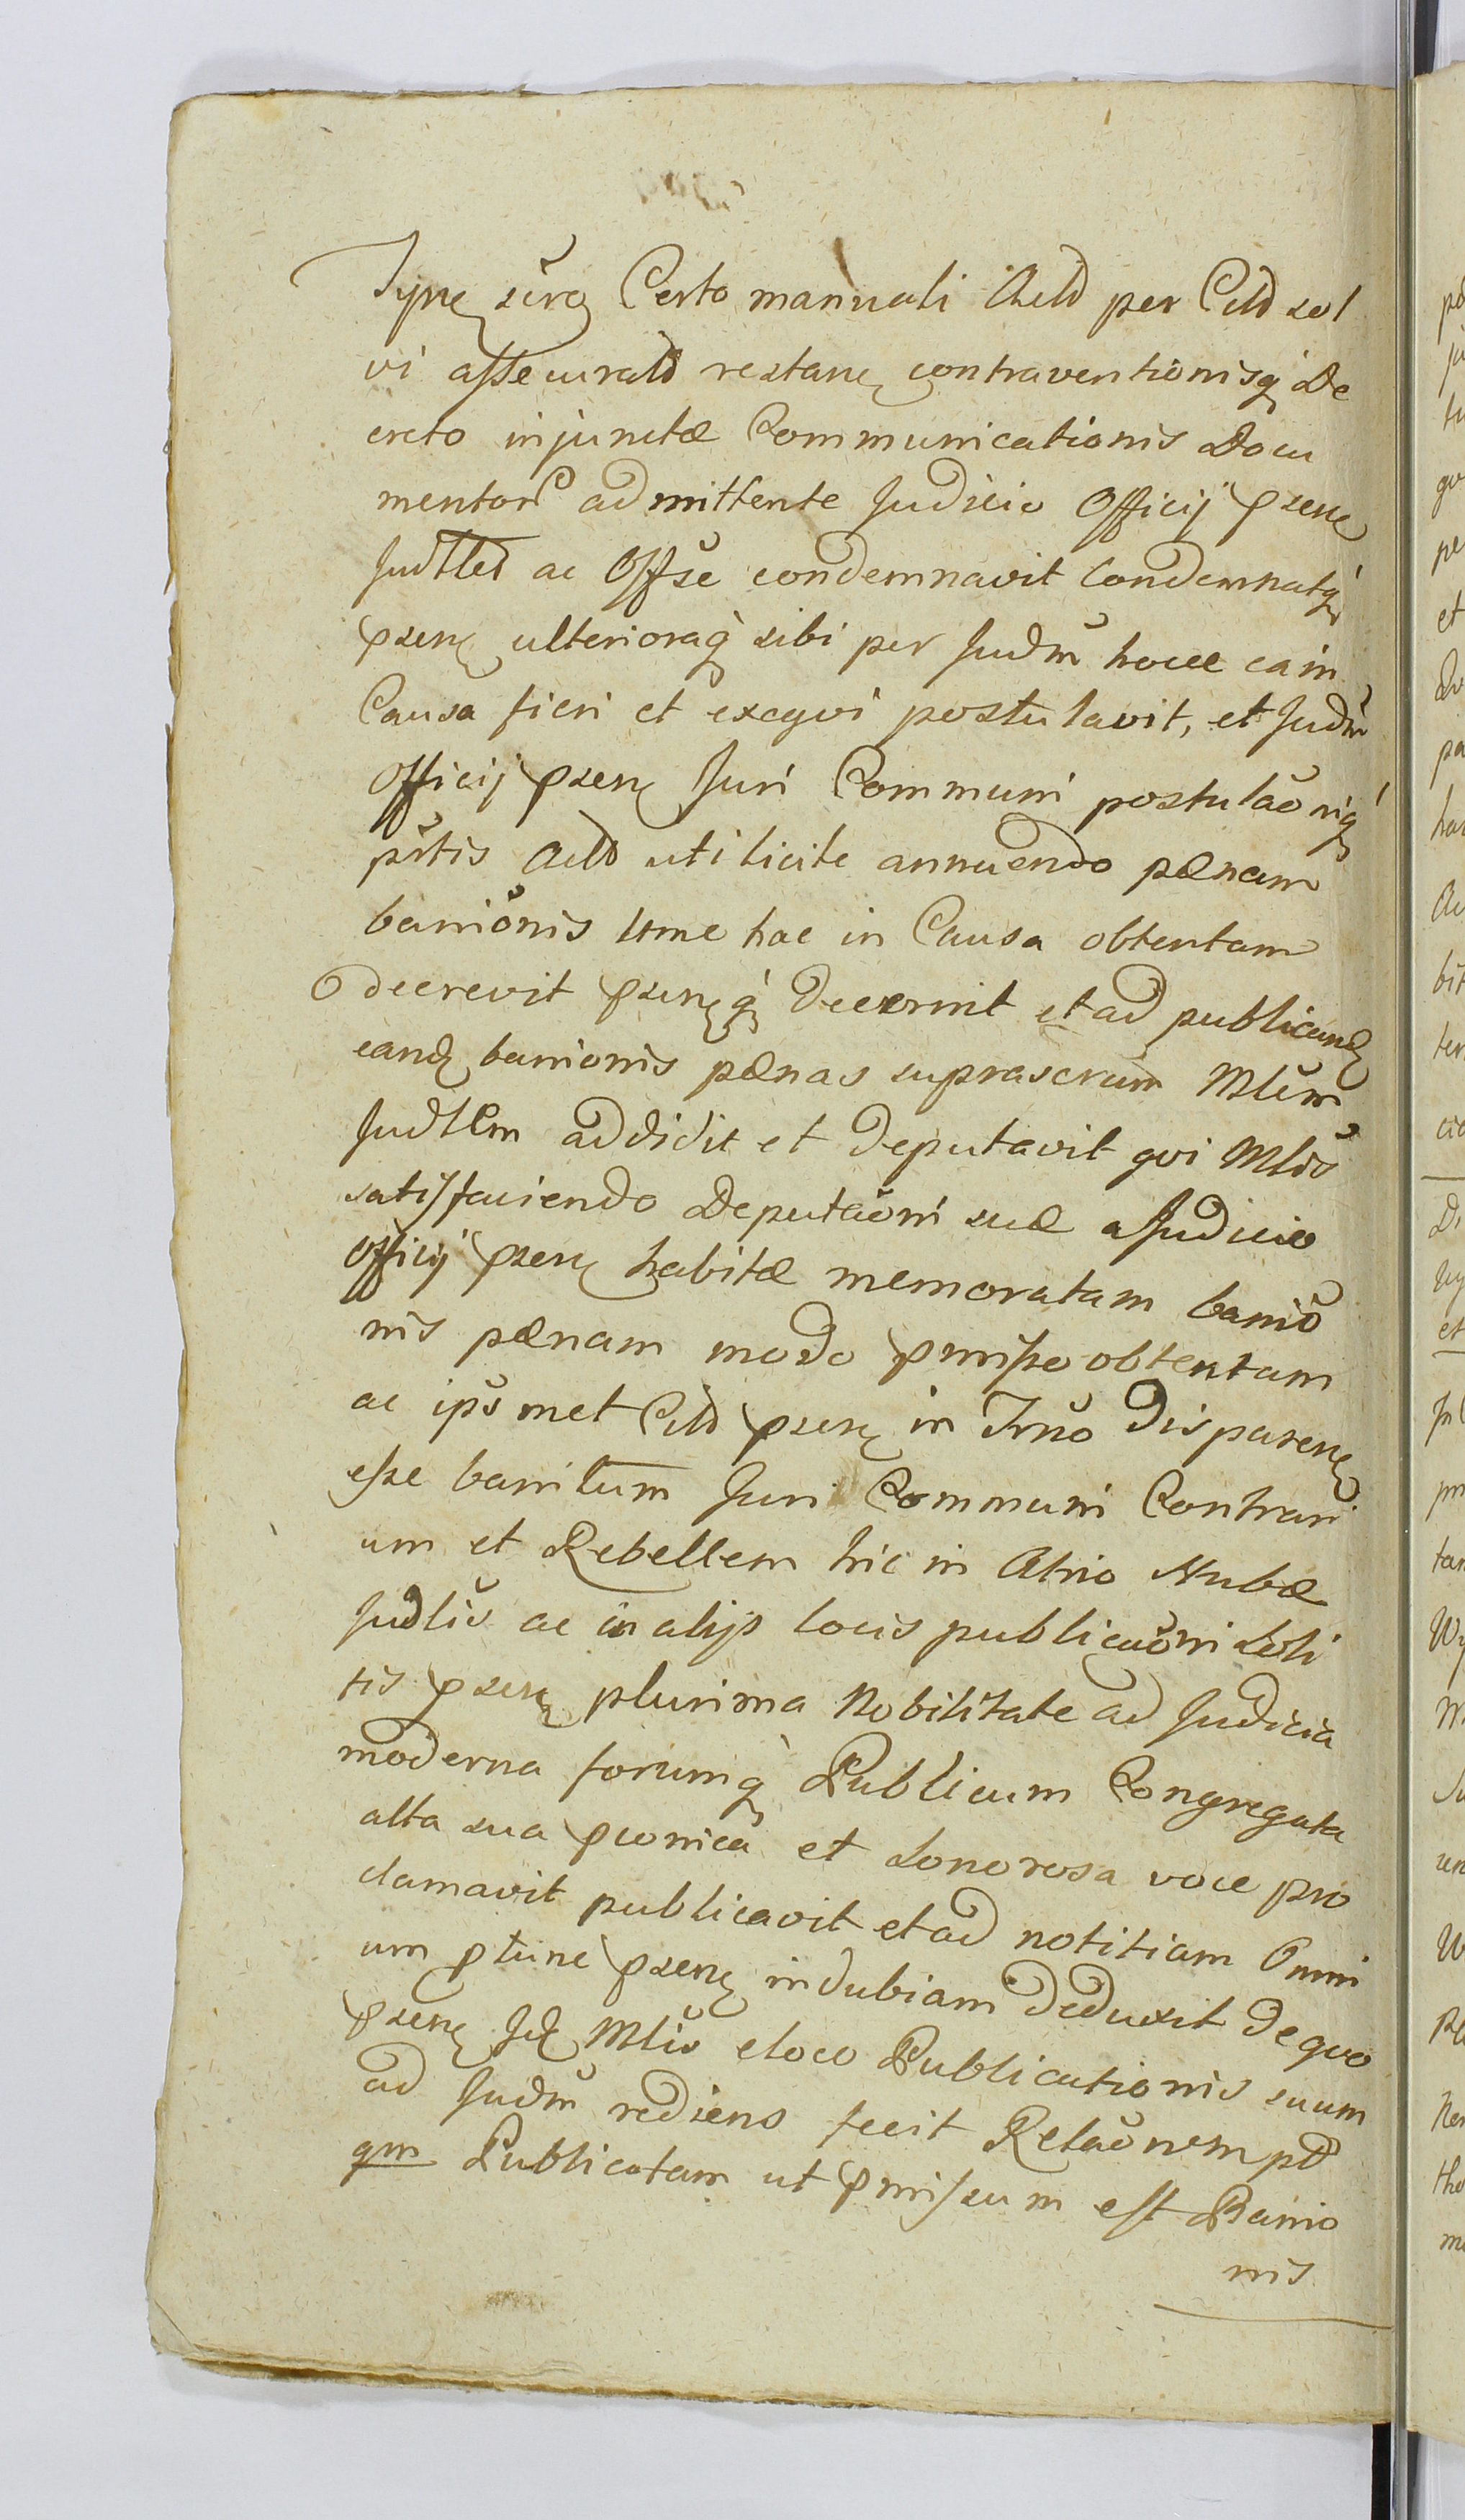 Iyne sūrg Certo manuali Actd per Citd sol
vi assecuratd restane contraventionisq De
creto injunctæ Communicationis Docu
mentor admittente Judicio Officij psene
Judtled ac Offse condemnavit Condemnatq
psene ulterioraq sibi per Judm hocce ea in
Causa fieri et exeqvi postulavit, et Judm
Officij psene Juri Communi postulaonig
prtis Actd uti licite annuendo pænam
banionis ume hac in Causa obtentam
decrevit pseneq decernit et ad publicand
eand banionis pænas suprascrium Mlem
Judtlem addidit et deputavit qvi Mlis
satisfaciendo Deputaoni suæ a Judicio
Officij psene habitæ memoratam banio
nis pænam modo pmisso obtentam
ac ips met Citd psene in Trno disparene
esse banitum Juri Communi Contrari
um et Rebellem hic in Atrio Stubæ
Judlis ac in alijs locis publicaoni soli
tis psene plurima Nobilitate ad Judicia
moderna forumq Publicum Congregata
alta sua pconica et sonorosa voce pro
clamavit publicavit et ad notitiam Omni
um ptune psene indubiam deduxit de quo
psene Jd Mlis eloco Publicationis suum
ad Judm rediens fecit Relaonem pd
qm Publicatam ut pmissum est Banio
nis